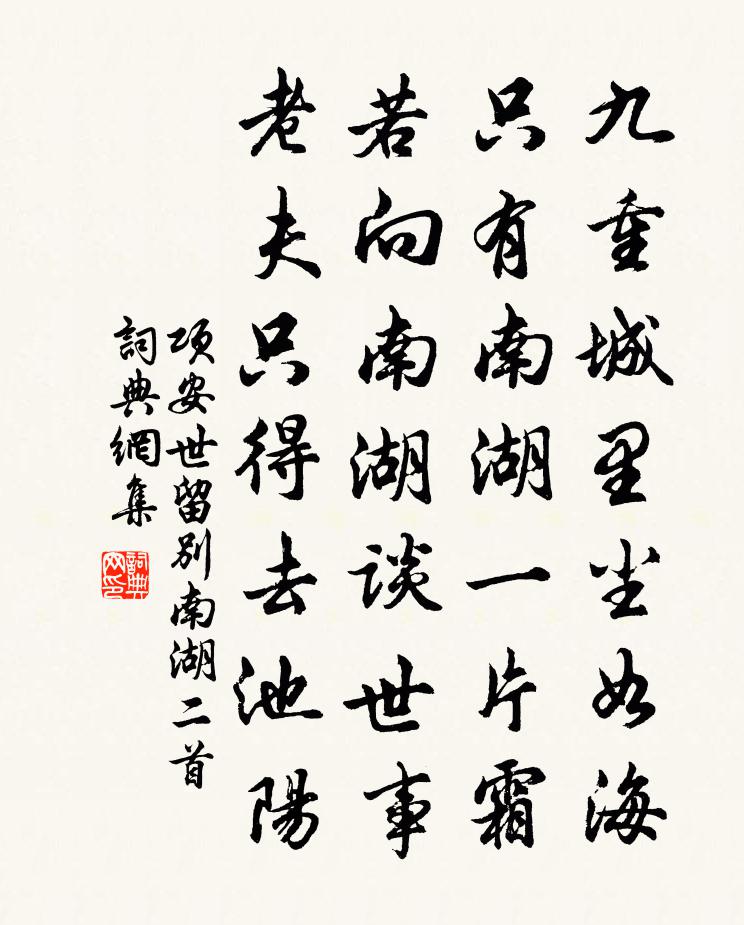 九重城里尘如海
只有南湖一片霜
若向南湖談世事
老夫只得去池陽
項安世留別南湖二首
詞典網集
詞典
网印